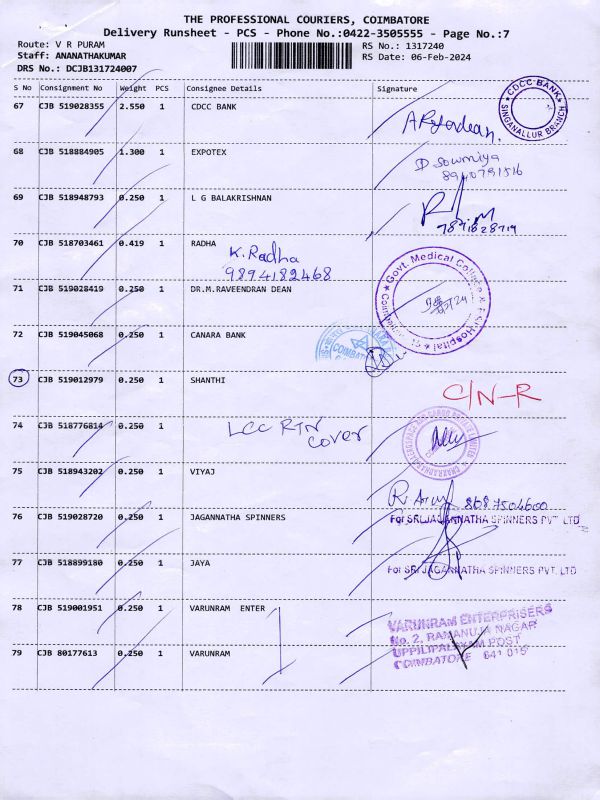 THE PROFESSIONAL COURIERS, COIMBATORE
Delivery Runsheet - PCS - Phone No.:0422-3505555 - Page No.:7
Route: V R PURAM
RS No.: 1317240
Staff: ANANATHAKUMAR
RS Date: 06-Feb-2024
DRS No.: DCJB131724007
S No Consignment No Weight PCS Consignee Details Signature
67 CJB 519028355 2.550 1 CDCC BANK
CDCC BANK SINGANALLUR BRANCH
68 CJB 518884905 1.300 1 EXPOTEX
D Sowmiya
8940791516
69 CJB 518948793 0.250 1 L G BALAKRISHNAN
70 CJB 518703461 0.419 1 RADHA
K. Radha
9894182468
71 CJB 519028419 0.250 1 DR.M.RAVEENDRAN DEAN
Govt. Medical College & ESI Hospital
72 CJB 519045068 0.250 1 CANARA BANK
73 CJB 519012979 0.250 1 SHANTHI
C/N-R
74 CJB 518776814 0.250 1
LCC RTN
COVER
75 CJB 518943202 0.250 1 VIYAJ
8087504600
76 CJB 519028720 0.250 1 JAGANNATHA SPINNERS
For SRI JAGANNATHA SPINNERS PVT LTD
77 CJB 518899180 0.250 1 JAYA
For SRI JAGANNATHA SPINNERS PVT. LTD
78 CJB 519001951 0.250 1 VARUNRAM ENTER
VARUNRAM ENTERPRISERS
No. 2, RAMANUJA NAGAR
UPPILIPALAYAM POST
COIMBATORE 641 015
79 CJB 80177613 0.250 1 VARUNRAM